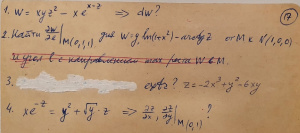 1. W = xyz² - x e^(x-z) ⇒ dW?
2. Найти ∂W/∂e|M(0,1,1) для W = y ln(1+x²) - arctg z от M к N(1,0,0)
3. extr? z = -2x³ + y² - 6xy
4. x e^(-z) = y² + √y · z ⇒ ∂z/∂x, ∂z/∂y|M(0,1) ?
17